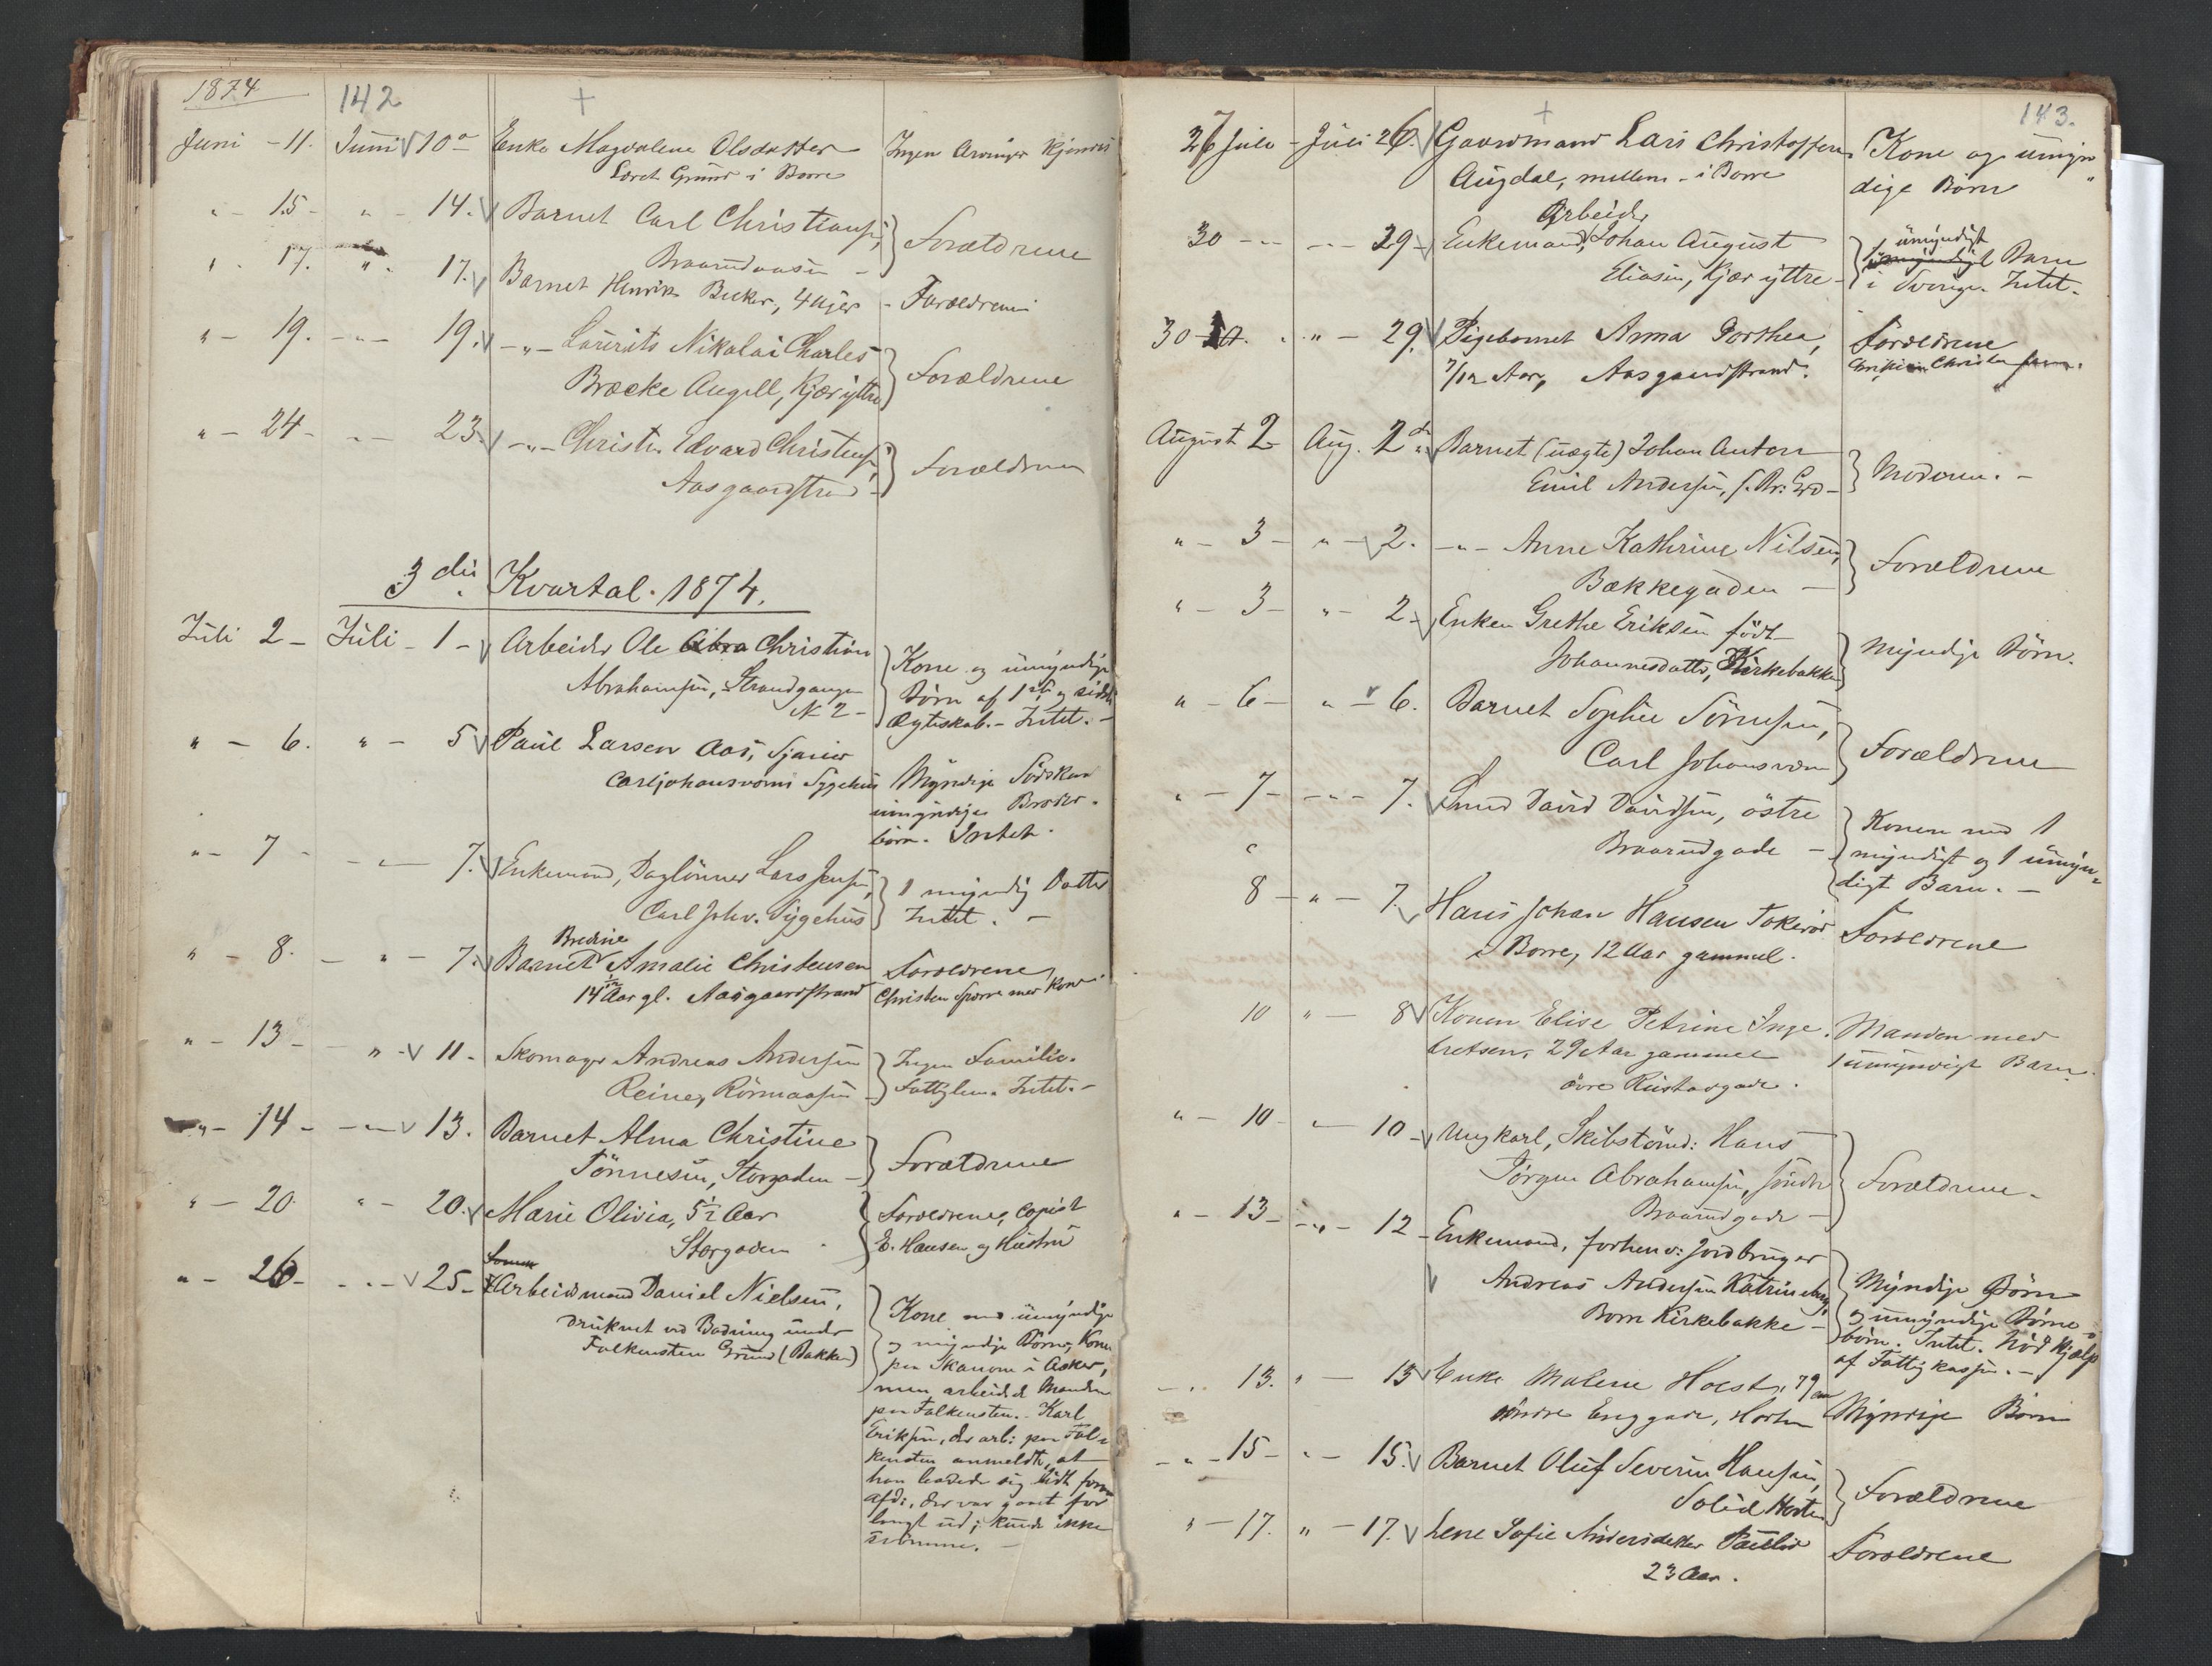 1874
142
Juni - 11. Juni 10 Enke Magdalene Olsdatter Ingen Arvinger kjendes
Grund i Borre
" - 15 - " - 14. Barnet Carl Christiansen, Forældrene
Braarudaasen -
" - 17. " - 17. Barnet Henrik Becker, 4 Uger - Forældrene
" - 19. - " - 19. - " - Laurits Nikolai Charles Forældrene
Bræcke Angell, Kjær yttre
" - 24 - " - 23. - " - Christen Edvard Christensen, Forældrene
Aasgaardstrand
3die Kvartal. 1874.
Juli 2 - Juli - 1 - Arbeider Ole Abra Christian Kone og umyndige
Abrahamsen, Strandgangen Børn af 1ste og sidste
N 2 - Ægteskab. - Intet. -
" - 6. " - 5 Paul Larsen Aas, Myndige Södsken
Carljohansværns Sygehus umyndige Broder-
börn. Intet.
" - 7 - - " - 7. Enkemand, Daglönner Lars Jensen, 1 myndig Datter
Carl Johv. Sygehus Intet. -
Bredine
" - 8. - " - 7. Barnet Amalie Christensen Forældrene,
14 Aar gl. Aasgaardstrand Christen Sporre med Kone
" - 13 - " - 11. Skomager Andreas Andersen Ingen Familie.
Reine, Rörmaasen Fattiglem. Intet. -
" - 14 - - " - 13. Barnet Alma Christine Forældrene
Tönnesen, Storgaden -
" - 20. " - 20. Marie Olivia, 5½ Aar Forældrene, Copist
Storgaden E. Hansen og Hustru
" - 26 - - " - 25 - Arbeidsmand Daniel Nielsen, Kone med umyndige
druknet ved Badning under og myndige Børn, Kone
Falkensten Grund (Bakken) paa Skanom i Asker,
men arbeidede Manden
paa Falkensten. Karl
Eriksen, der arb: paa Fal-
kensten anmeldte, at
han badede sig
afd:, der var gaaet for
langt ud; kunde ikke
svömme. -
143.
27 Juli - Juli 26. Gaardmand Lars Christoffersen Kone og umyn-
Augdal, mellem - i Borre dige Børn
Arbeider
30 - " - - " - 29 - Enkemand, Johan August 1 umyndigt Barn
Eliasen, Kjær yttre - i Sverige. Intet.
30 " - 29. Pigebarnet Anna Dorthea, Forældrene
7/12 Aar, Aasgaardstrand.
August 2 Aug. 2 Barnet (uægte) Johan Anton Moderen. -
Emil Andersen,
" - 3 - " - 2. - " - Anne Kathrine Nilsen, Forældrene
Bækkegaden -
" - 3 - " - 2 - Enken Grethe Eriksen født Myndige Børn.
Johannesdatter, Kirkebakken
" - 6 - " - 6. Barnet Sophie Sörensen, Forældrene
Carl Johansværn
" - 7 - - " - 7. Smed David Davidsen, östre Konen med 1
Braarudgade - myndigt og 1 umyn-
digt Barn. -
8 - " - 7. Hans Johan Hansen Tokeröd Forældrene
i Borre, 12 Aar gammel.
10 " - 8 Konen Elise Petrine Inge- Manden med
bretsen, 29 Aar gammel 1 umyndigt Barn.
övre Rustadgade.
" - 10 - " - 10 - Ungkarl, Skibstömd: Hans Forældrene -
Jörgen Abrahamsen, söndre
Braarudgade -
" - 13 - - " - 12 - Enkemand, forhenv: Jordbruger
Andreas Andersen Katrineborg, Myndige Børn
Borre Kirkebakke - og umyndige Børne-
börn. Intet. Nød Hjælp
af Fattigkassen. -
" 13. " - 13 Enke Malene Holst, 79 Aar Myndige Børn
söndre Enggade, Horten
- " - 15 - " - 15. Barnet Oluf Severin Hansen, Forældrene
Solid Horten
" - 17. " - 17. Lene Sofie Andersdatter Forældrene
23 Aar.